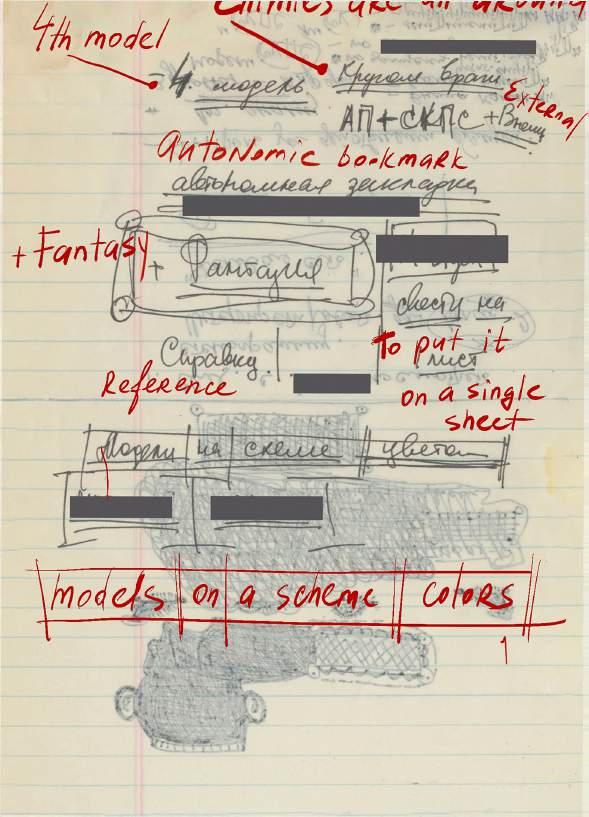 Enemies are all around
4th model
4. модель
Кругом враги
External
АП+СКПС+Внеш
Autonomic bookmark
автономная закладка
+ Fantasy
+ Фантазия
свести на
лист
To put it
on a single
sheet
Справку
Reference
Модели на схеме цветом
models on a scheme colors
1